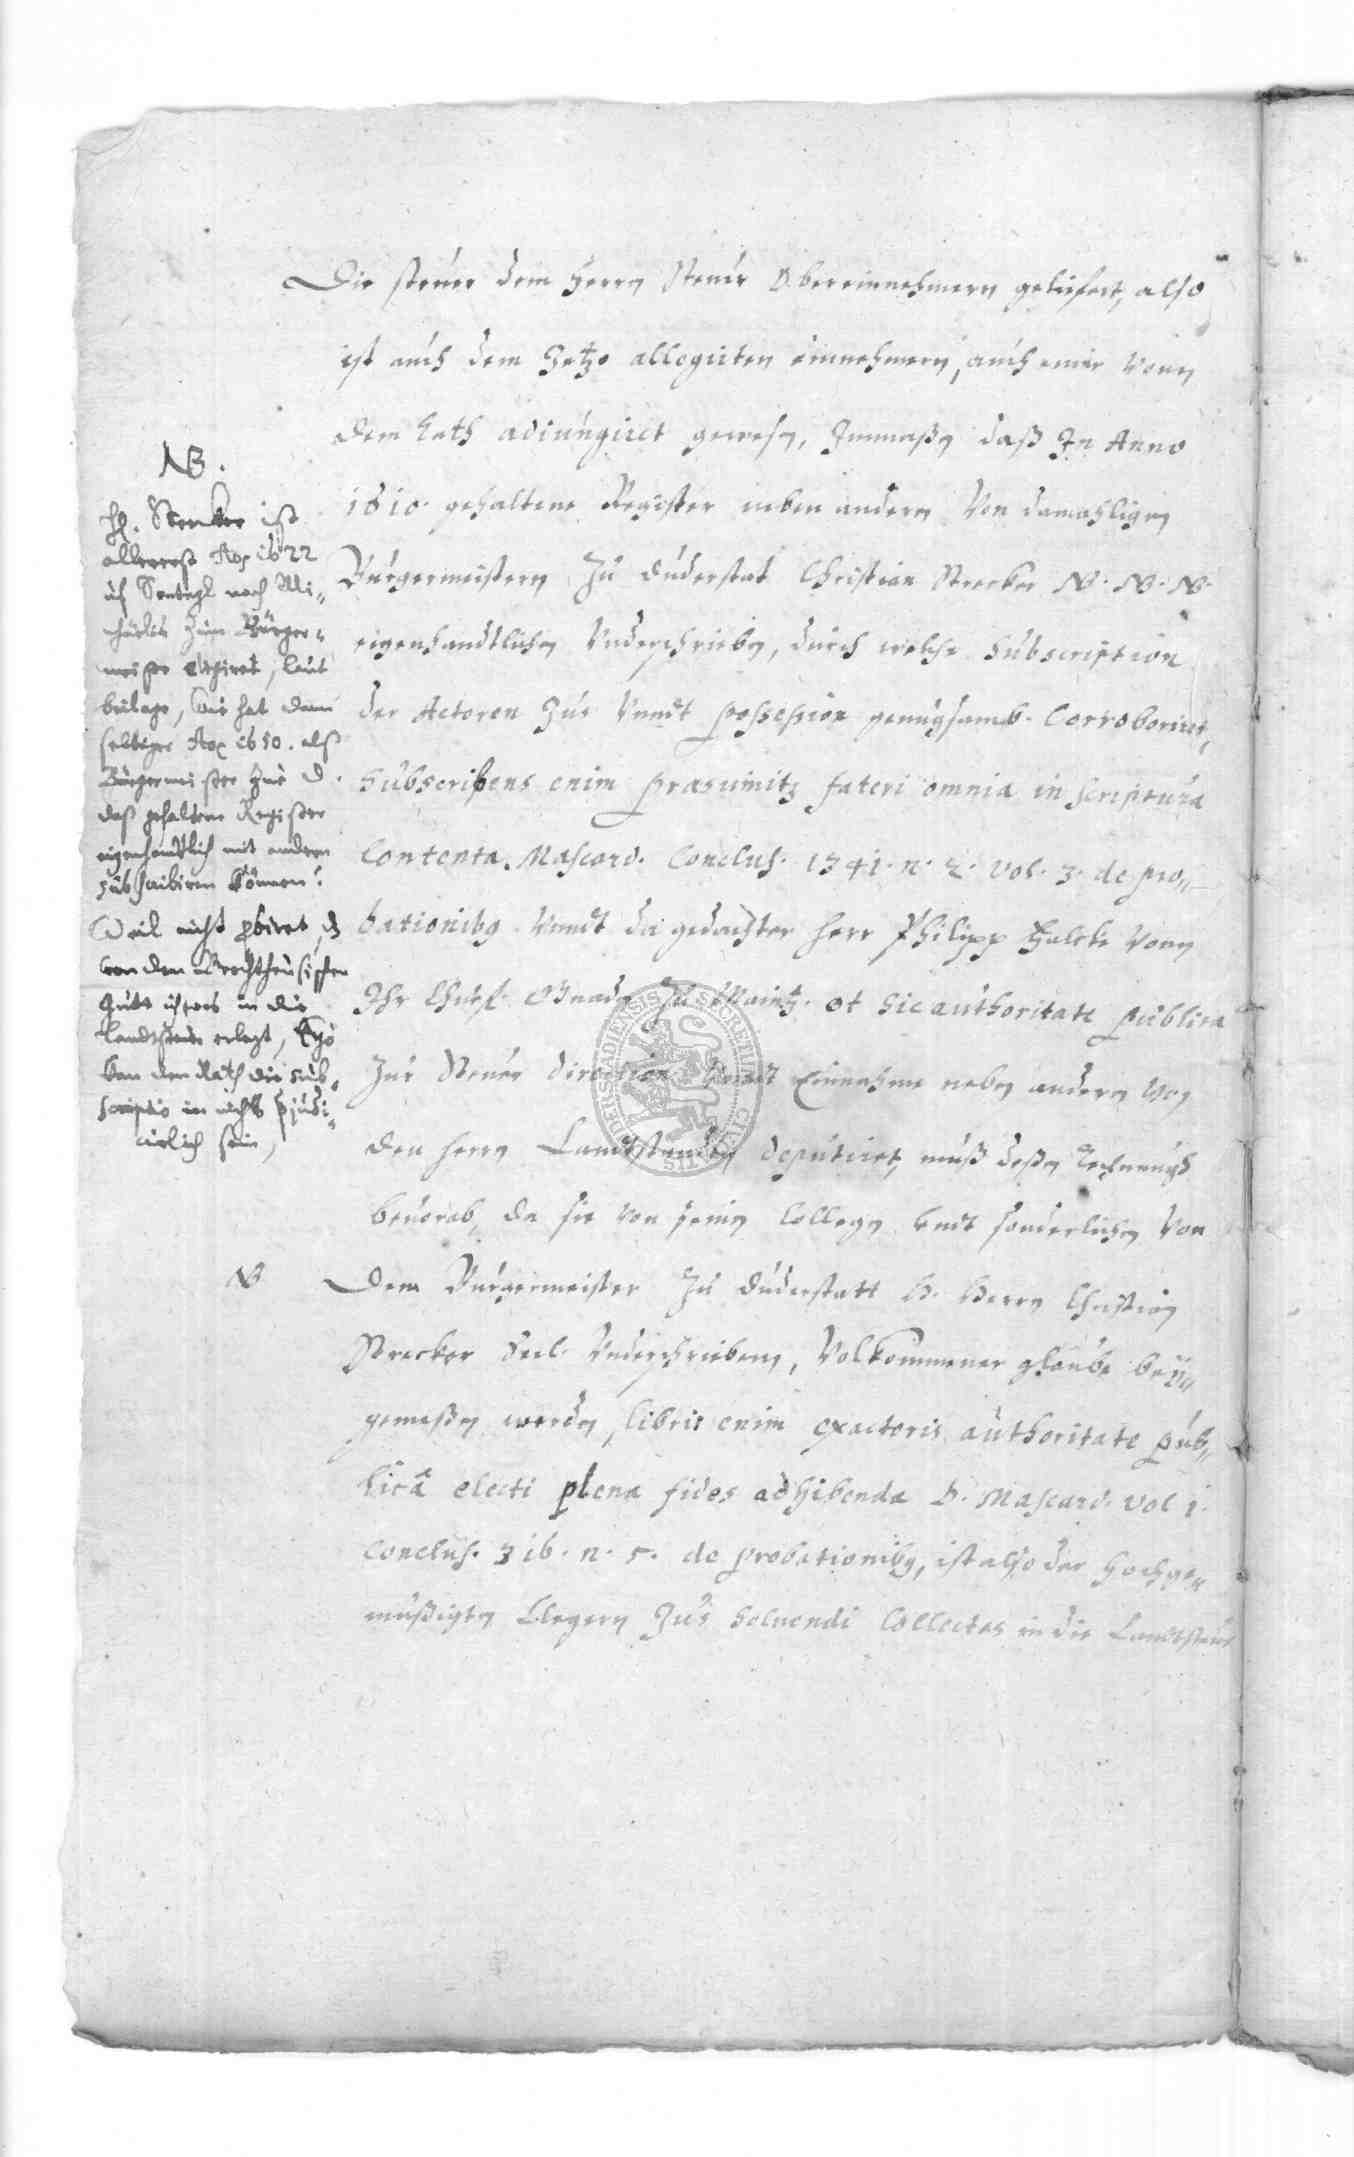 Die steuer dem Herrn Steur Obereinnehmern geliefert, also
ist auch dem Jetzo allegirten einnehmern, auch einer Vonn
dem Rath adiungiret gewesen, Inmaßen daß In Anno
1610. gehaltene Register neben andern Von damahligen
Burgermeistern Zu Duderstat Christian Strecker NB. NB. NB.
eigenhandtlichen Underschrieben, durch welche Subscription
der Actoren Jus Unndt possession genugsamb. Corroboriret,
Subscribens enim præsumitur fateri omnia in scriptura
Contenta. Mascard. Conclus. 1341. n. 2. Vol. 3. de pro„
bationibg. Unndt da gedachter herr Philipp Vonn
Ihr Churf. Gnaden Zu Maintz. et sic authoritate publica
Zur Steuer direction Unndt Einnahme neben andern Von
den herrn Landtstanden deputiret, muß deßen
bevorab, da sie von seinen Collegen Undt sonderlichen Von
Dem Burgermeister Zu Duderstatt H. Herrn Christian
Strecker Seel. Underschriebenn, Volkommener glaube bey„
gemeßen werden, libris enim exactoris authoritate pub„
licâ electi plena fides adhibenda D. Mascard. vol 1.
Conclus. 316. n. 5. de probationibg, ist also der hochge„
müßigten Clegern Jus Solvendi Collectas in die Landtsteur
NB.
H. Strecker ist
allererst Ao 1622
uf Sontagk nach Mi„
chaelis zum Bürger„
meister , laut
beilage, Wie hat dann
selbiger Ao 1610. alß
Bürgermeister zue D.
daß gehaltene Register
eigenhendtlich mit andern
subscribiren können?
Weil nicht probiret, dz
von den
Gute ichtwas in die
Landtsteur erlegt,
kan dem Rath die sub„
scriptio in nichts præjudi„
cirlich sein,
NB